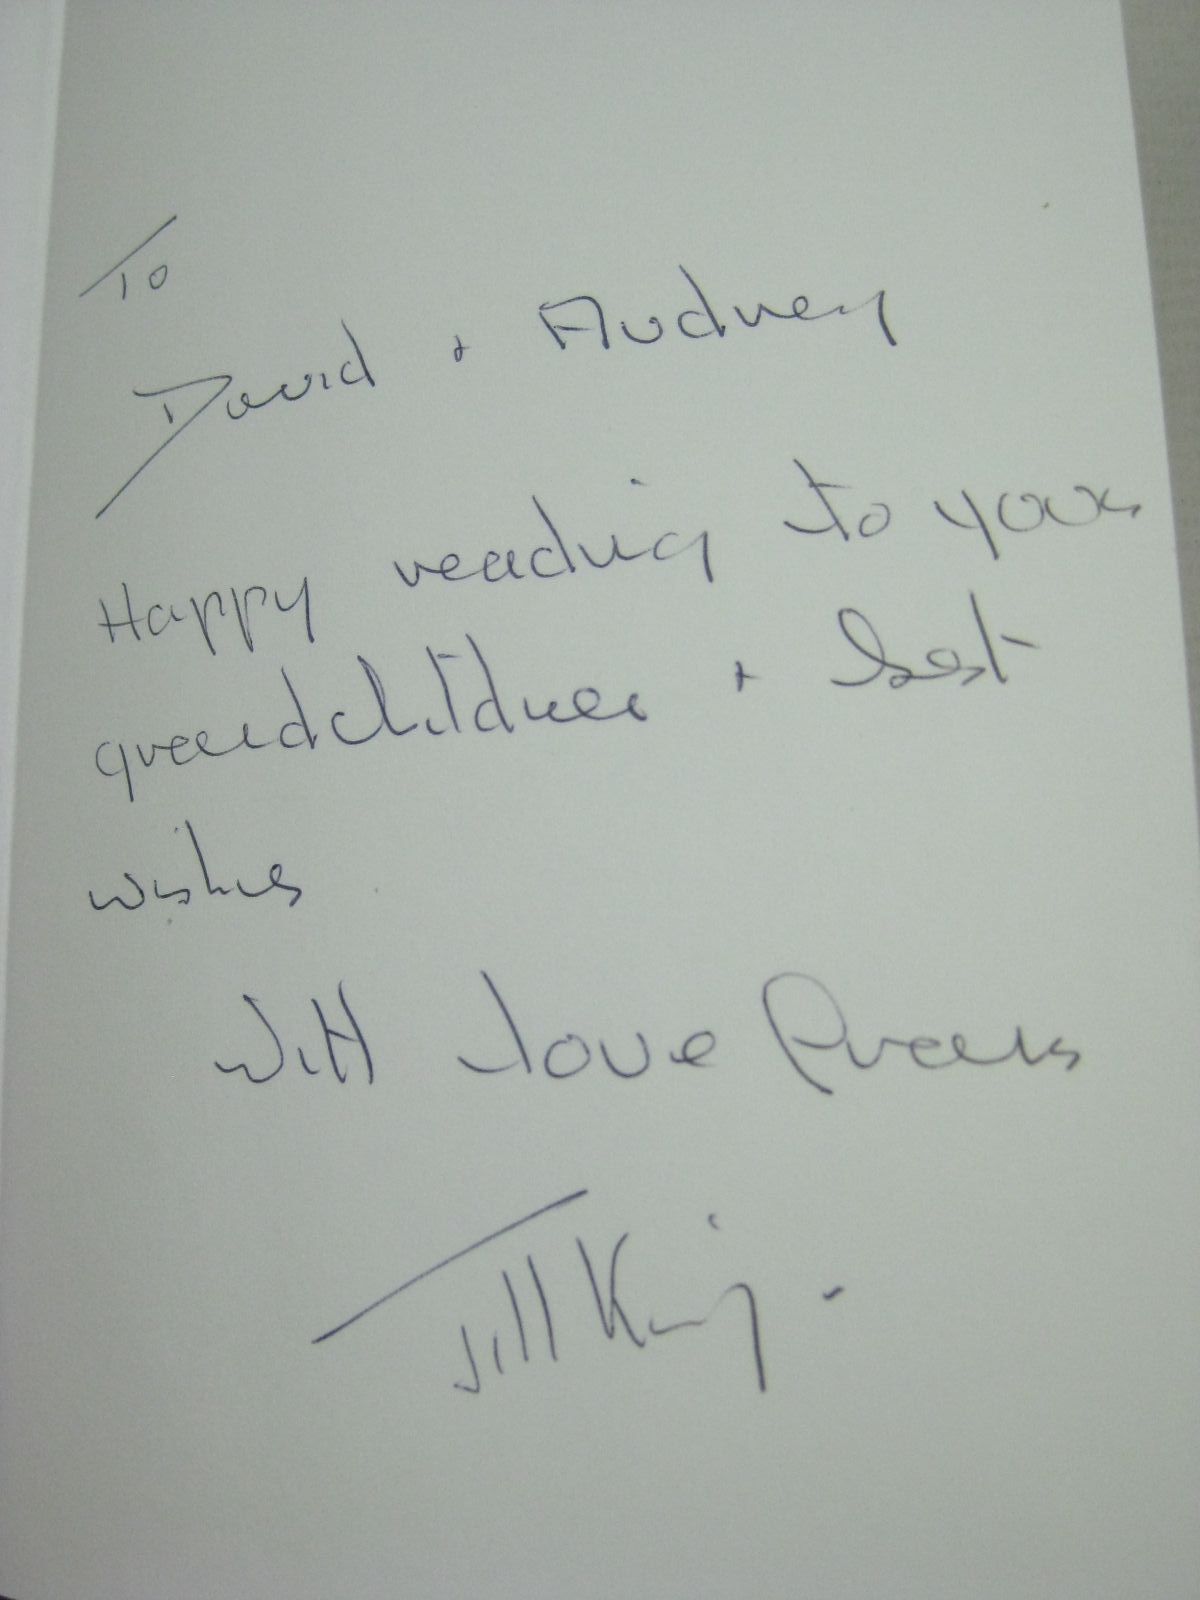 To
David + Audrey
Happy reading to your
grandchildren + best
wishes
With love from
Jill King.